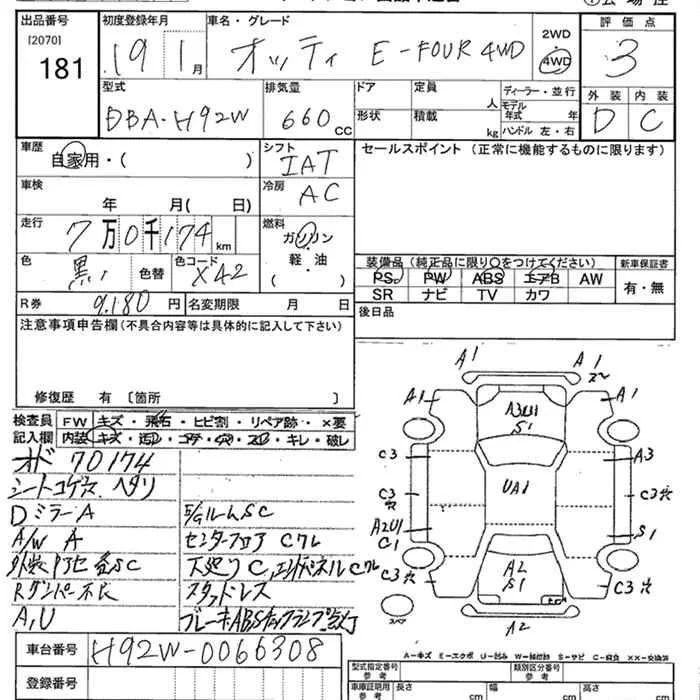 出品番号
[2070]
181
初度登録年月
19 1月
車名・グレード
オッティ E-FOUR 4WD
2WD
4WD
評価点
3
型式
DBA-H92W
排気量
660cc
ドア
形状
定員
人
積載
kg
ディーラー・並行
モデル
年式 年
ハンドル 左・右
外装
内装
D
C
車歴
自家用・( )
シフト
IAT
冷房
AC
セールスポイント (正常に機能するものに限ります)
車検
年 月( 日)
走行
7万0千174km
燃料
ガソリン
軽・油
( )
色
黒
色替
色コード
X42
R券
9,180円
名変期限
月 日
装備品(純正品に限り○をつけてください)
新車保証書
PS PW ABS エアB AW
SR ナビ TV カワ
有・無
後日品
注意事項申告欄(不具合内容等は具体的に記入して下さい)
修復歴 有 〔箇所 〕
検査員
記入欄
FW
キズ・飛石・ヒビ割・リペア跡・×要
内装
キズ・汚レ・コゲ・穴・スレ・キレ・破レ
オド 70174
シートコゲ穴 ヘタリ
Dミラー A
A/W A
外装 キズSC
Rダンパー不良
A,U
E/GルームSC
センターフロア Cフレ
下廻りC,エンドパネルCフレ
スタッドレス
ブレーキ,ABSチェックランプ点灯
A1
A1
A1
A1
S1
C3
A3
UA1
C3穴
C3穴
A2U1
C1
S1
A2
S1
C3穴
C3穴
スペア
A2
A-キズ E-エクボ U-凹み W-補修跡 S-サビ C-腐食 XX-交換済
車台番号
H92W-0066308
登録番号
型式指定番号
参考
類別区分番号
参考
車庫証明用
参考
長さ
cm
幅
cm
高さ
cm